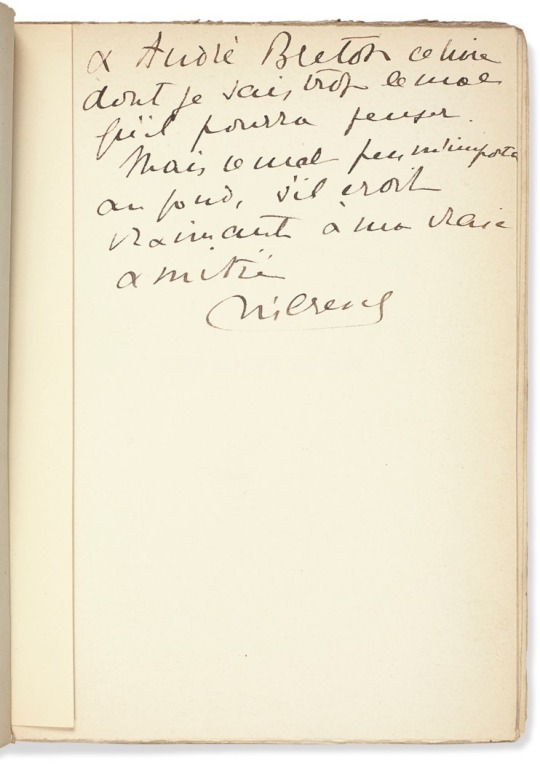 à André Breton ce livre
dont je sais trop le mal
qu'il pourra penser.
Mais ce mal peu m'importe
au fond, s'il croit
vraiment à ma vraie
amitié
RCrevel